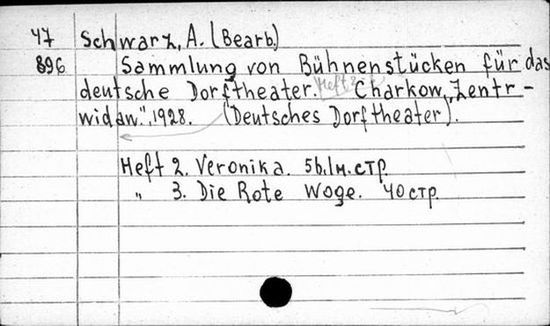 47 Schwarz, A. (Bearb.)
896 Sammlung von Bühnenstücken für das
deutsche Dorftheater. Charkow, „Zentr-
widaw", 1928. (Deutsches Dorftheater).
Heft 2. Veronika. 56.1м.стр.
„ 3. Die Rote Woge. 40 стр.